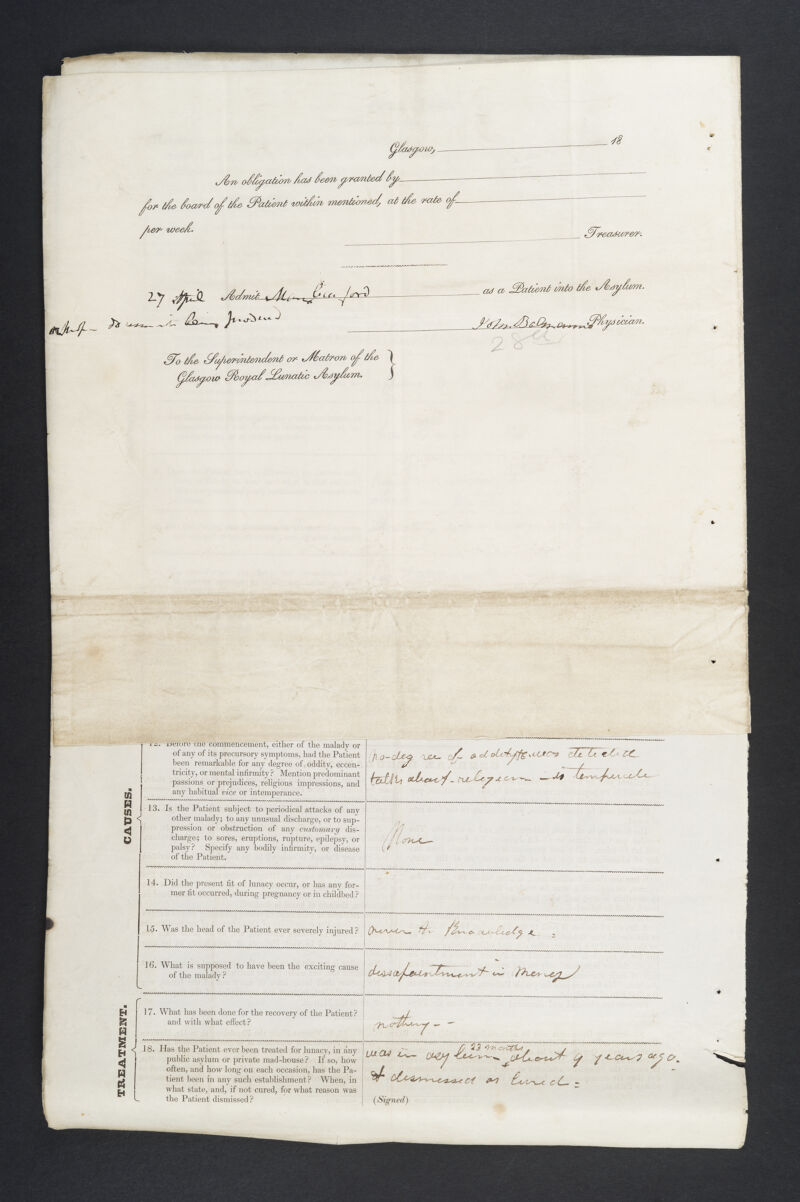 Glasgow, 18
An obligation has been granted by
for the board of the Patient within mentioned, at the rate of
per week.
Treasurer.
27 April Admit Craford as a Patient into the Asylum.
being produced John Balmanno Physician.
28a
To the Superintendent or Matron of the
Glasgow Royal Lunatic Asylum.
CAUSES.
12. Before the commencement, either of the malady or
of any of its precursory symptoms, had the Patient
been remarkable for any degree of oddity, eccen-
tricity, or mental infirmity? Mention predominant
passions or prejudices, religious impressions, and
any habitual vice or intemperance.
no degree of oddity was detected
talks about religion – is temperate
13. Is the Patient subject to periodical attacks of any
other malady; to any unusual discharge, or to sup-
pression or obstruction of any customary dis-
charge; to sores, eruptions, rupture, epilepsy, or
palsy? Specify any bodily infirmity, or disease
of the Patient.
None
14. Did the present fit of lunacy occur, or has any for-
mer fit occurred, during pregnancy or in childbed?
15. Was the head of the Patient ever severely injured?
never to Knowledge
16. What is supposed to have been the exciting cause
of the malady?
dissapointment in money
TREATMENT.
17. What has been done for the recovery of the Patient?
and with what effect?
nothing - -
18. Has the Patient ever been treated for lunacy, in any
public asylum or private mad-house? If so, how
often, and how long on each occasion, has the Pa-
tient been in any such establishment? When, in
what state, and, if not cured, for what reason was
the Patient dismissed?
23 months
was in asylum about 9 years ago.
& dismissed as Cured =
(Signed)